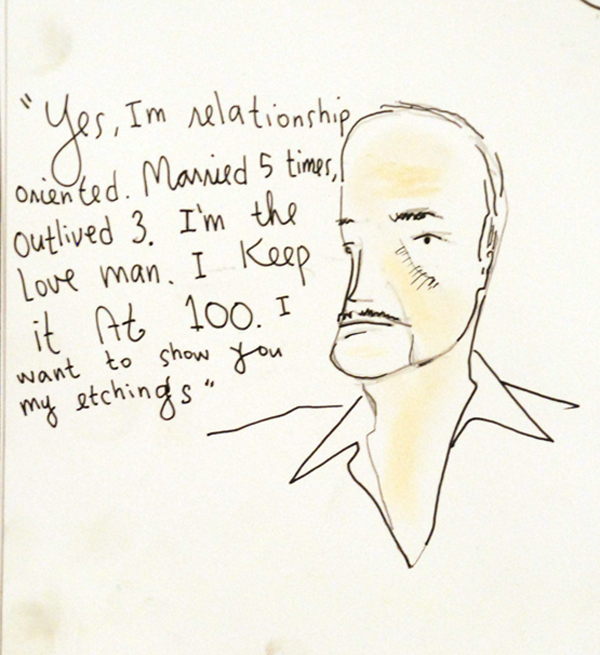 "Yes, Im relationship
oriented. Married 5 times,
outlived 3. I'm the
Love man. I Keep
it At 100. I
want to show you
my etchings"